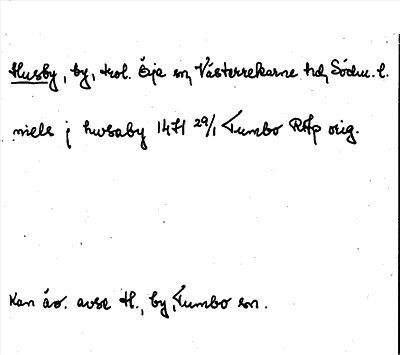 Husby, by, trol. Öja sn, Västerrekarne hd, Södm. l.
niels j husaby 1471 29/1 Tumbo RAp orig.
Kan äv. avse H., by, Tumbo sn.